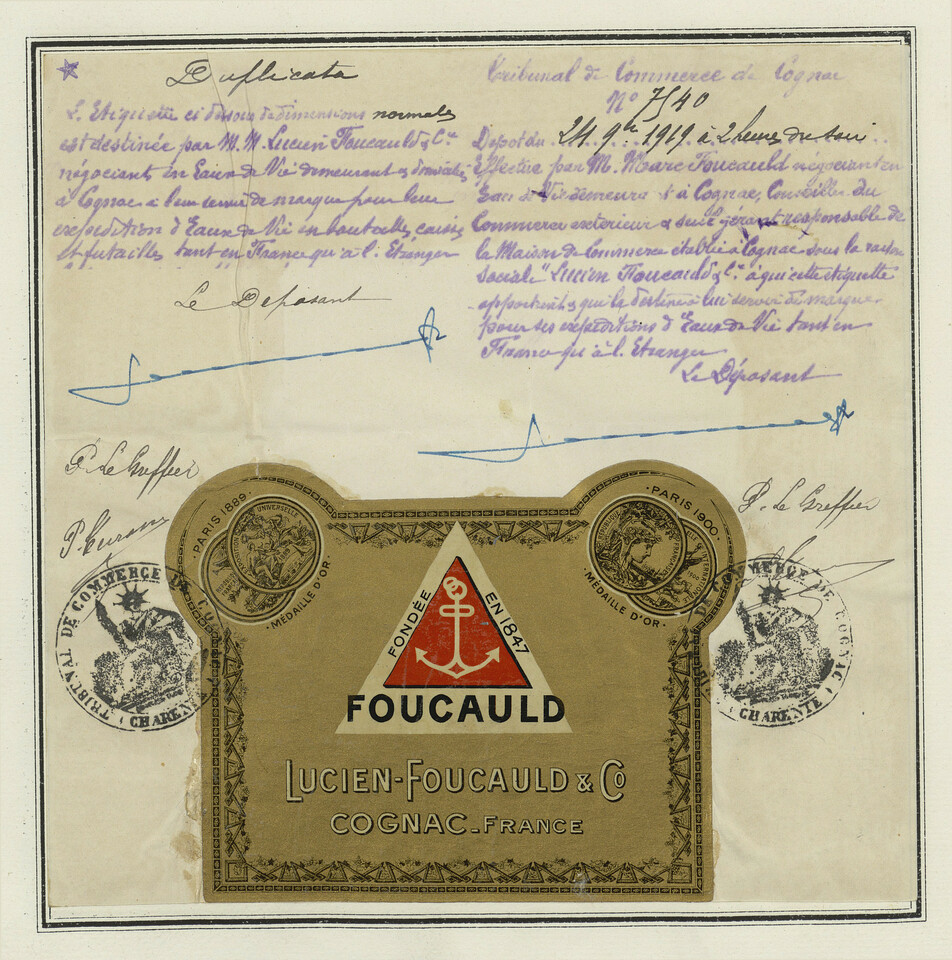 Duplicata
L'Etiquette ci dessous de dimensions normales
est destinée par M.M. Lucien Foucauld & Cie
négociants en Eaux de Vie demeurant et domiciliés
à Cognac à leur servir de marque pour leur
expédition d'Eaux de Vie en bouteilles caisses
et futailles tant en France qu'à l'Etranger
Le Déposant
Tribunal de Commerce de Cognac
No 7540
Dépot du 24 9bre 1919 à 2 heures du soir
Effectué par M. Marc Foucauld négociant en
Eau de Vie demeurant à Cognac, Conseiller du
Commerce extérieur & seul gérant responsable de
la Maison de Commerce établie à Cognac sous la raison
sociale "Lucien Foucauld & Cie à qui cette étiquette
appartient & qui la destine à lui servir de marque
pour ses expéditions d'Eaux de Vie tant en
France qu'à l'Etranger
Le Déposant
P. Le Greffier
P. Le Greffier
TRIBUNAL DE COMMERCE DE
CHARENTE
TRIBUNAL DE COMMERCE DE COGNAC
CHARENTE
PARIS 1889
MÉDAILLE D'OR
PARIS 1900
MÉDAILLE D'OR
FONDÉE EN 1847
FOUCAULD
LUCIEN-FOUCAULD & Co
COGNAC-FRANCE